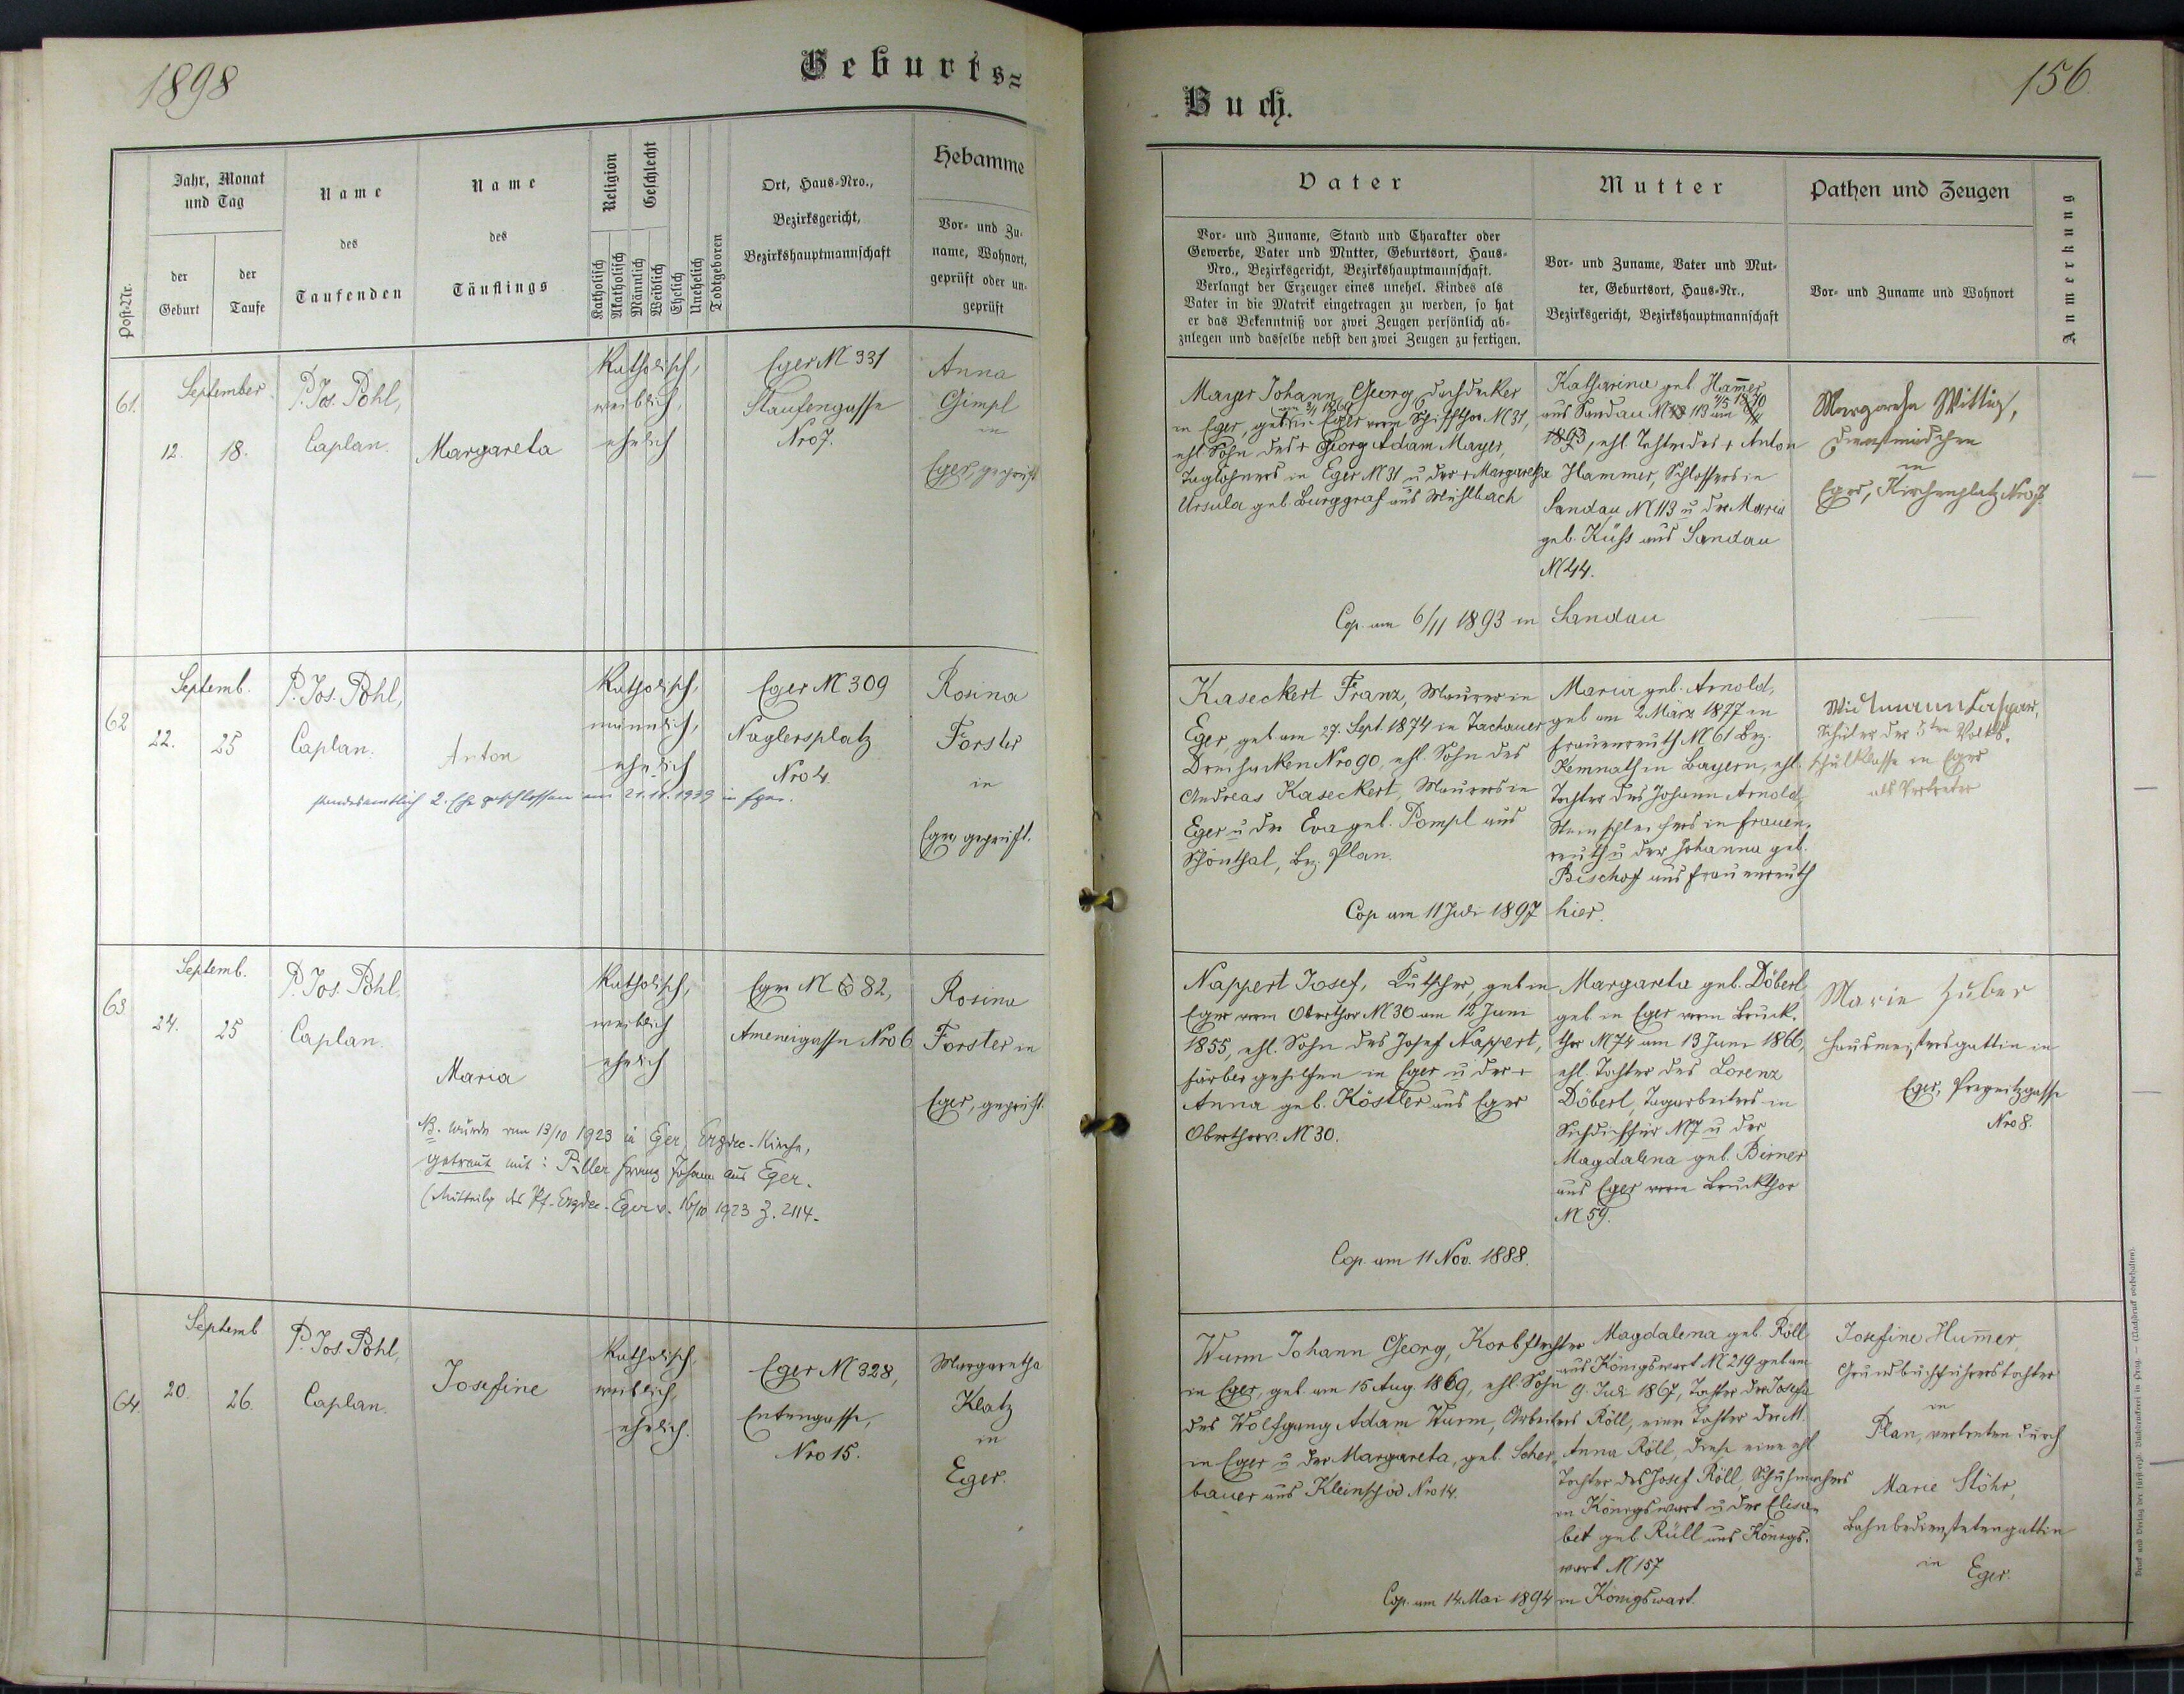 1898
Geburts=
Jahr, Monat
und Tag
Name
des
Taufenden
Name
des
Täuflings
Religion
Geschlecht
Ort, Haus-Nro.,
Bezirksgericht,
Bezirkshauptmannschaft
Hebamme
Vor- und Zu-
name, Wohnort,
geprüft oder un-
geprüft
Post-Nr.
der
Geburt
der
Taufe
Katholisch
Akatholisch
Männlich
Weiblich
Ehelich
Unehelich
Todtgeboren
61.
September
12.
18.
P. Jos. Pohl,
Caplan.
Margareta
Katholisch,
weiblich,
ehelich
Eger N 331
Staufengasse
Nro 7.
Anna
Gimpl
in
Eger, geprüft
62
Septemb.
22.
25
P. Jos. Pohl,
Caplan.
Anton
Katholisch,
männlich,
ehelich
Eger N 309
Naglersplatz
Nro 4
Rosina
Forster
in
Eger geprüft.
standesamtlich 2. Ehe geschlossen am 21.11.1939 in Eger.
63
Septemb.
24.
25
P. Jos. Pohl,
Caplan.
Maria
Katholisch,
weiblich
ehelich
Eger N 82,
Ameneigasse Nro 6
Rosina
Forster in
Eger, geprüft.
NB. wurde am 13/10 1923 in Eger, Erzdec.-Kirche,
getraut mit: Piller Franz Johann aus Eger.
(Mitteilg des Pf. Erzdec. Eger v. 16/10 1923 Z. 2114.
64.
Septemb
20.
26.
P. Jos. Pohl,
Caplan.
Josefine
Katholisch,
weiblich,
ehelich.
Eger N 328,
Entengasse,
Nro 15.
Margaretha
Klatz
in
Eger.
Buch.
156.
Vater
Vor- und Zuname, Stand und Charakter oder
Gewerbe, Vater und Mutter, Geburtsort, Haus-
Nro., Bezirksgericht, Bezirkshauptmannschaft.
Verlangt der Erzeuger eines unehel. Kindes als
Vater in die Matrik eingetragen zu werden, so hat
er das Bekenntniß vor zwei Zeugen persönlich ab-
zulegen und dasselbe nebst den zwei Zeugen zu fertigen.
Mutter
Vor- und Zuname, Vater und Mut-
ter, Geburtsort, Haus-Nr.,
Bezirksgericht, Bezirkshauptmannschaft
Pathen und Zeugen
Vor- und Zuname und Wohnort
Anmerkung
Mayer Johann Georg Dachdecker
in Eger, geb. in Eger vorm Schiffthor N 31,
ehl. Sohn des + Georg Adam Mayer,
Taglöhners in Eger N 31 u der + Margaretha
Ursula geb. Burggraf aus Mühlbach
Katharina geb. Hammer
aus Sandau N 113 am
1893, ehl. Tochter des + Anton
Hammer, Schlossers in
Sandau N 113 u der Maria
geb. Küß aus Sandau
N 44.
Cop. am 6/11 1893 in Sandau
Margaretha Wittig,
Dienstmädchen
in
Eger, Kirchenplatz Nro 7.
Kaseckert Franz, Maurer in
Eger, geb. am 27. Sept. 1874 in Tachauer
Dreihacken Nro 90, ehl. Sohn des
Andreas Kaseckert, Maurers in
Eger u der Eva geb. Pompl aus
Schönthal, Bez. Plan.
Maria geb. Arnold,
geb. am 2. März 1877 in
Frauenreuth N 61 Bez.
Kemnath in Bayern, ehl.
Tochter des Johann Arnold,
Steinschleifers in Frauen-
reuth u der Johanna geb.
Bischof aus Frauenreuth
Cop. am 11 Juli 1897 hier.
Widmann Kaspar,
Schüler der 5ten Volks-
schulklasse in Eger
als Vertreter
Nappert Josef, Kutscher, geb. in
Eger vorm Oberthor N 30 am 12 Juni
1855, ehl. Sohn des Josef Nappert,
Färbergehilfen in Eger u der +
Anna geb. Köstler aus Eger
Oberthorv. N 30.
Margareta geb. Döberl
geb. in Eger vorm Bruck-
thor N 74 am 13 Juni 1866,
ehl. Tochter des Lorenz
Döberl, Tagarbeiters in
Siechdichfür N 7 u der
Magdalena geb. Birner
aus Eger vorm Bruckthor
N 59.
Cop. am 11 Nov. 1888.
Marie Huber
Hausmeistersgattin in
Eger, Pregnitzgasse
Nro 8.
Wurm Johann Georg, Korbflechter
in Eger, geb. am 15 Aug. 1869, ehl. Sohn
des Wolfgang Adam Wurm, Arbeiters
in Eger u der Margareta, geb. Scher-
bauer aus Kleinschöd Nro 14.
Magdalena geb. Röll
aus Königswart N 219 geb. am
9. Juli 1867, Tochter der Josefa
Röll, einer Tochter der M.
Anna Röll, diese eine ehl.
Tochter des Josef Röll, Schuhmachers
in Königswart u der Elisa-
bet geb. Rüll aus Königs-
wart N 157
Cop. am 14 Mai 1894 in Königswart.
Josefine Hummer,
Grundbuchführerstochter
in
Plan, vertreten durch
Marie Stöhr,
Bahnbedienstetengattin
in Eger.